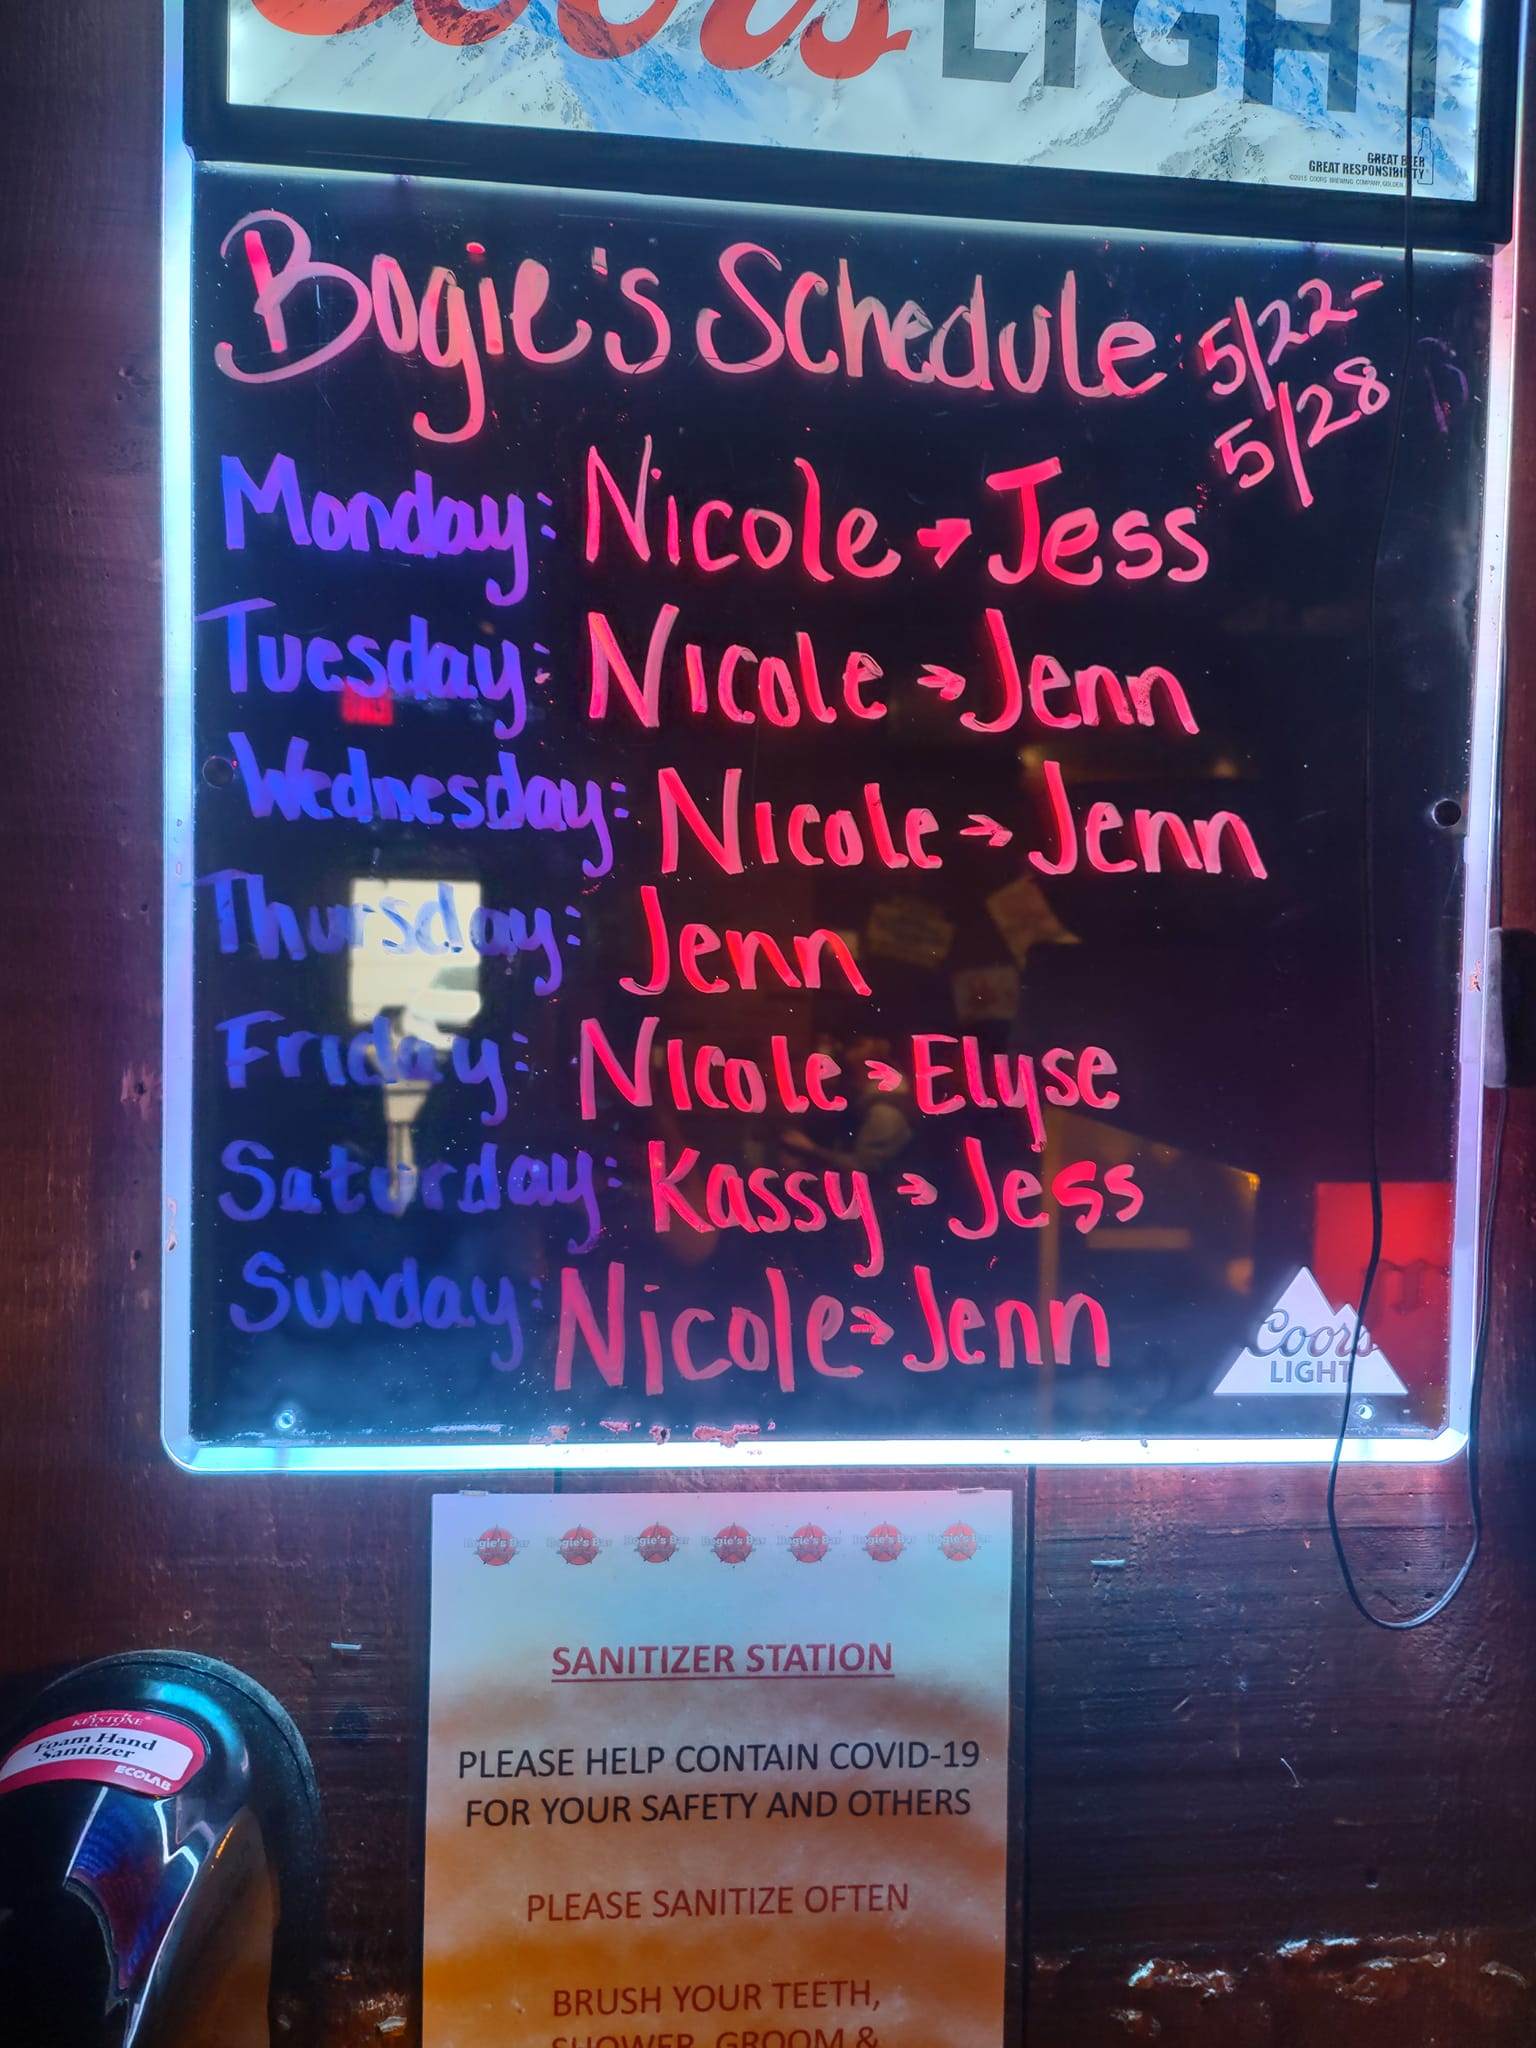 Coors LIGHT
GREAT BEER
GREAT RESPONSIBILITY
©2015 COORS BREWING COMPANY, GOLDEN
Bogie's Schedule: 5/22-
5/28
Monday: Nicole → Jess
Tuesday: Nicole → Jenn
Wednesday: Nicole → Jenn
Thursday: Jenn
Friday: Nicole → Elyse
Saturday: Kassy → Jess
Sunday: Nicole → Jenn
Coors
LIGHT
Bogie's Bar Bogie's Bar Bogie's Bar Bogie's Bar Bogie's Bar Bogie's Bar Bogie's Bar
SANITIZER STATION
PLEASE HELP CONTAIN COVID-19
FOR YOUR SAFETY AND OTHERS
PLEASE SANITIZE OFTEN
BRUSH YOUR TEETH,
SHOWER, GROOM &
KEYSTONE
Foam Hand
Sanitizer
ECOLAB